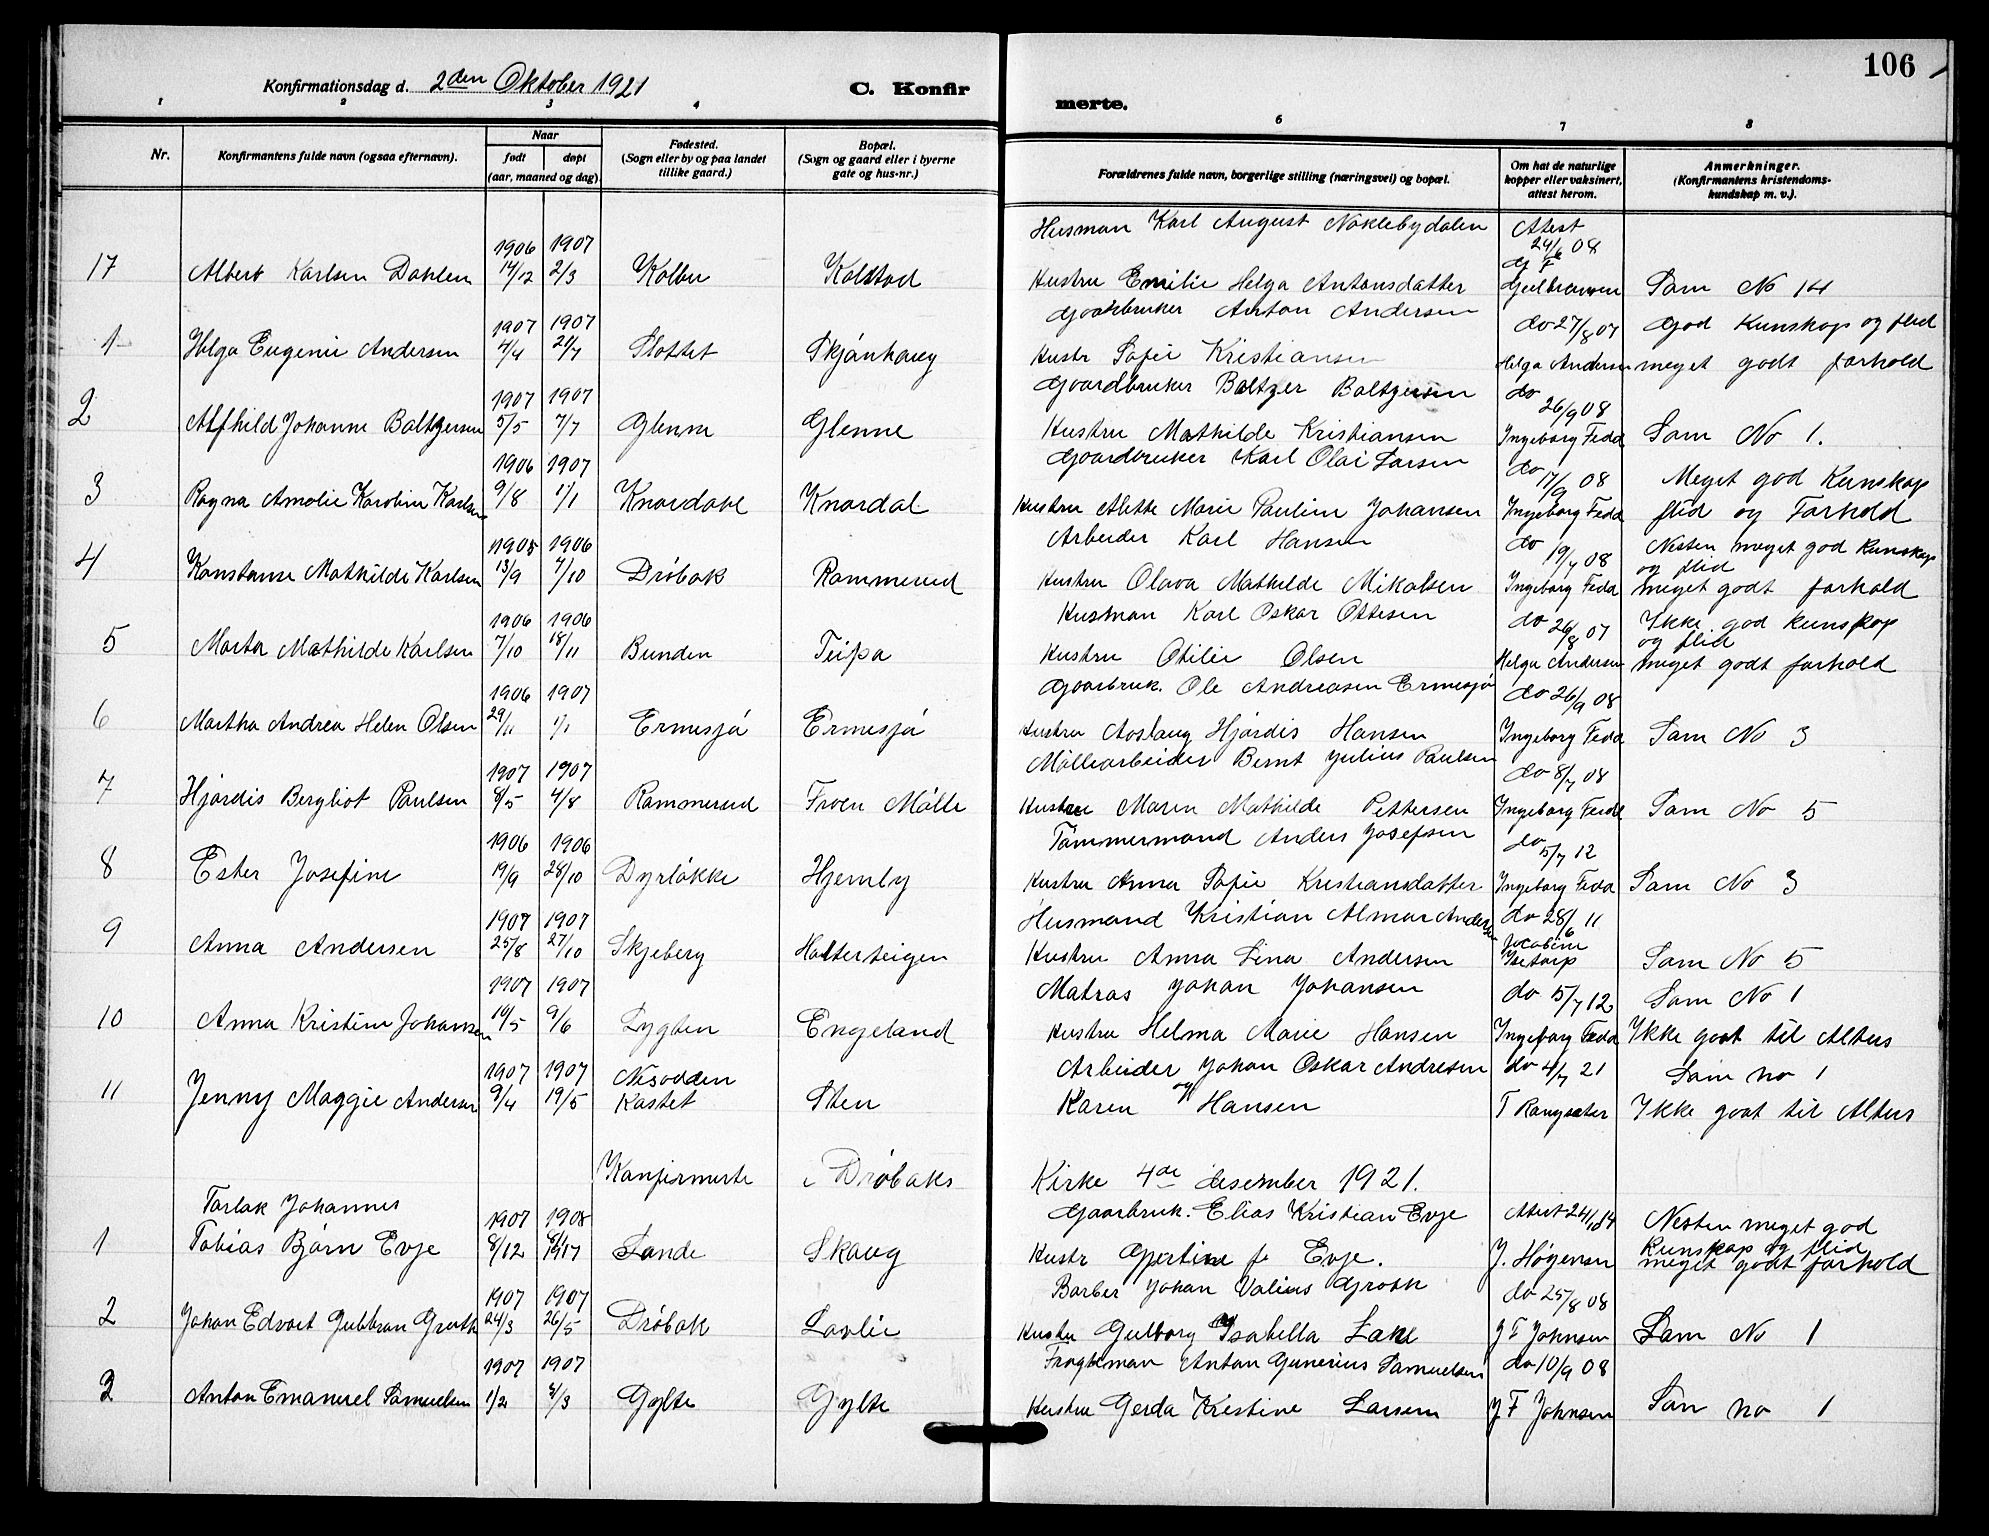 106
Konfirmationsdag d. 2den Oktober 1921
C. Konfir
merte.
1 2 3 4 6 7 8
Nr.
Konfirmantens fulde navn (ogsaa efternavn).
Naar
født døpt
(aar, maaned og dag).
Fødested.
(Sogn eller by og paa landet
tillike gaard.)
Bopæl.
(Sogn og gaard eller i byerne
gate og hus-nr.)
Forældrenes fulde navn, borgerlige stilling (næringsvei) og bopæl.
Om hat de naturlige
kopper eller vaksinert,
attest herom.
Anmerkninger.
(Konfirmantens kristendoms-
kundskap m. v.).
Husman Karl August Noklebydalen Attest
1906 1907 24/6 08
17 Albert Karlsen Dahlen 14/12 2/3 Kolbu Kolstad Hustru Emilie Helga Antonsdatter Gulbransen Sam No 14
1907 1907 Gaarbruker Anton Andersen do 27/8 07 God Kunskap og flid
1 Helga Eugenie Andersen 4/4 21/7 Slottet Skjánhaug Hustr Sofie Kristiansen Helga Andersen meget godt forhold
1907 1907 Gaardbruker Baltzer Baltzersen do 26/9 08
2 Alfhild Johanne Baltzersen 5/5 7/7 Glenne Glenne Hustru Mathilde Kristiansen Ingeborg Fedd Sam No 1.
1906 1907 Gaardbruker Karl Olai Larsen do 17/9 08 Meget god Kunskap
3 Ragna Amalie Karoline Karlsen 9/8 1/1 Knardahl Knardal Hustru Alette Marie Pauline Johansen Ingeborg Fedd flid og Forhold
1905 1906 Arbeider Karl Hansen do 19/7 08 Nesten meget god kunskap
og flid
4 Konstanse Mathilde Karlsen 13/9 7/10 Dröbak Rammerud Hustru Olava Mathilde Mikalsen Ingeborg Fedd meget godt forhold
1906 1906 Husman Karl Oskar Ottesen do 26/8 07 Ikke god kunskap
og flid
5 Marta Mathilde Karlsen 7/10 18/11 Bunden Teipa Hustru Otilie Olsen Helga Andersen meget godt forhold
1906 1907 Gaarbruk. Ole Andreasen Ermesjö do 26/9 08
6 Martha Andrea Helen Olsen 29/11 1/1 Ermesjö Ermesjö Hustru Aaslaug Hjördis Hansen Ingeborg Fedd Sam No 3
1907 1907 Möllearbeider Bernt Julius Paulsen do 8/7 08
7 Hjördis Bergliot Paulsen 8/5 4/8 Rammerud Froen Mölle Hustru Maren Mathilde Pettersen Ingeborg Fedd Sam No 5
1906 1906 Tömmermand Anders Josefsen do 5/7 12
8 Ester Josefine 19/9 28/10 Dyrlökke Hjemly Hustru Anna Sofie Kristiansdatter Ingeborg Fedd Sam No 3
1907 1907 Husmand Kristian Almar Andersen do 28/6 11
9 Anna Andersen 25/8 27/10 Skjeberg Holterteigen Hustru Anna Lina Andersen Jacobine
Isetorp Sam No 5
1907 1907 Matros Johan Johansen do 5/7 12 Sam No 1
10 Anna Kristine Johansen 10/5 9/6 Lygten Engeland Hustru Helma Marie Hansen Ingeborg Fedd Ikke gaat til Alters
1907 1907 Nesodden Arbeider Johan Oskar Andresen do 4/7 21 Sam no 1
11 Jenny Maggie Andersen 9/4 19/5 Kastet Sten Karen og Hansen T Rangsæter Ikke gaat til Alters
Konfirmerte i Dröbaks Kirke 4de desember 1921.
Tarlak Johannes 1907 1908 Gaarbruk. Elias Kristian Evje Attest 24/1 14 Nesten meget god
1 Tobias Bjørn Evje 8/12 Sande Skaug Hustr f Evje. J. Högensen Kunskap og flid
meget godt forhold
1907 1907 Barber Johan Valius Groth do 25/8 08
2 Johan Edvart Gulbran Groth 24/3 26/5 Dröbak Lavlie Hustru Gulborg Isabella Lake J F Johnsen Sam No 1
1907 1907 Fragtman Anton Gunerius Samuelsen do 10/9 08
3 Anton Emanuel Samuelsen 1/2 Gylte Gylte Hustru Gerda Kristine Larsen J F Johnsen Sam no 1